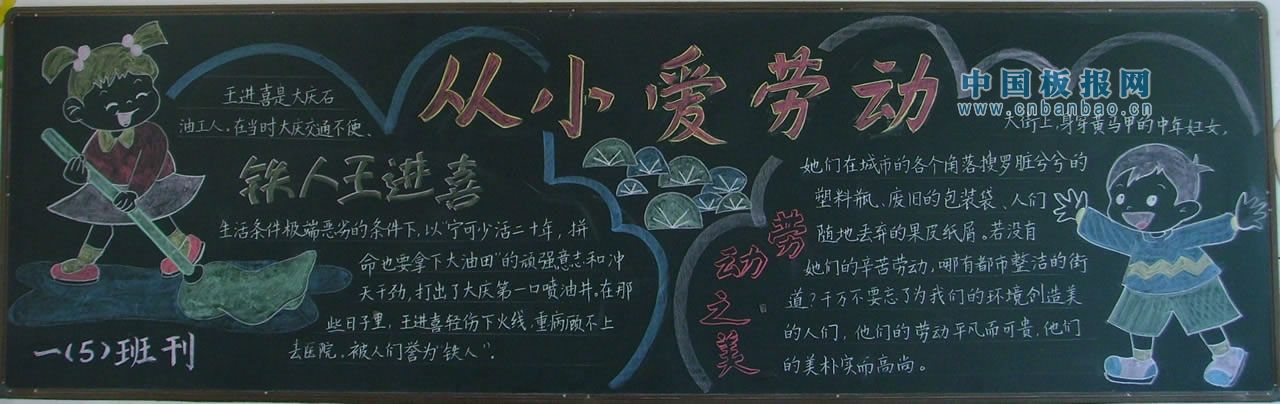 从小爱劳动
中国板报网
www.cnbanbao.cn
王进喜是大庆石
油工人。在当时大庆交通不便、
铁人王进喜
生活条件极端恶劣的条件下，以“宁可少活二十年，拼
命也要拿下大油田”的顽强意志和冲
天干劲，打出了大庆第一口喷油井。在那
些日子里，王进喜轻伤下火线，重病顾不上
去医院，被人们誉为“铁人”。
一（5）班刊
劳动之美
大街上，身穿黄马甲的中年妇女，
她们在城市的各个角落搜罗脏兮兮的
塑料瓶、废旧的包装袋、人们
随地丢弃的果皮纸屑。若没有
她们的辛苦劳动，哪有都市整洁的街
道？千万不要忘了为我们的环境创造美
的人们，他们的劳动平凡而可贵，他们
的美朴实而高尚。